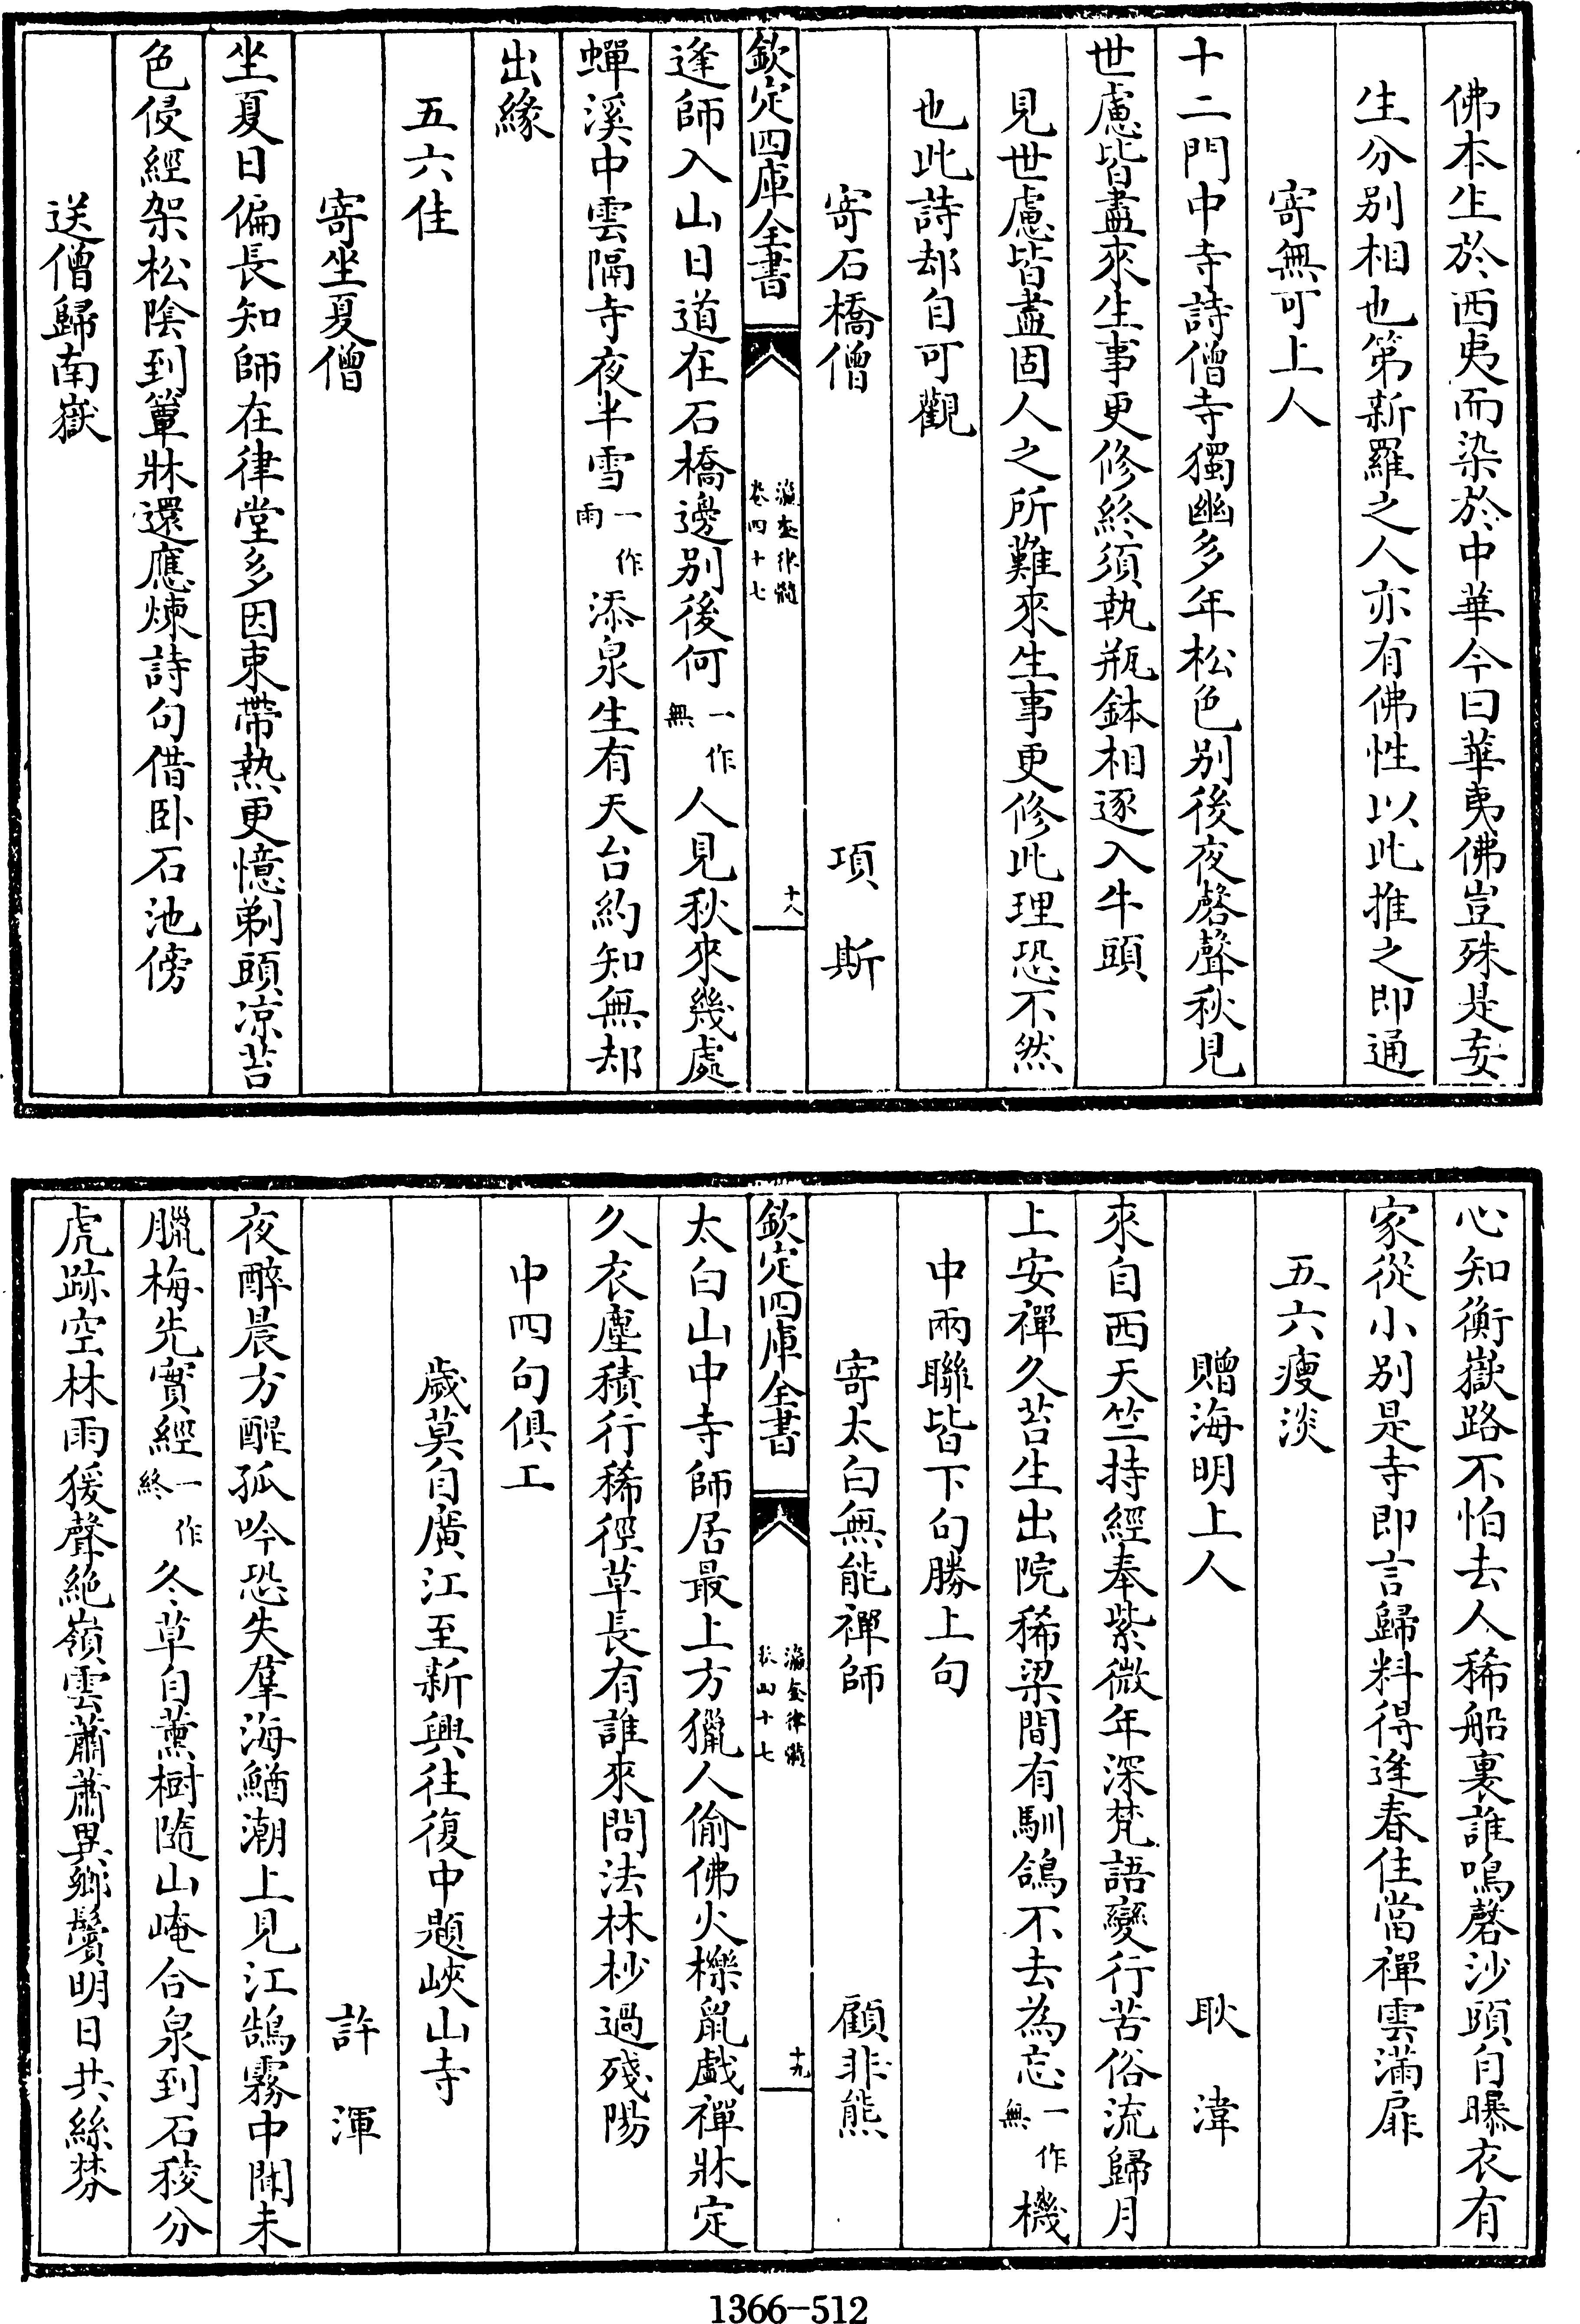 佛本生於西夷而染於中華今曰華夷佛豈殊是妄
生分别相也第新羅之人亦有佛性以此推之即通
寄無可上人
十二門中寺詩僧寺獨幽多年松色别後夜磬聲秋見
世慮皆盡來生事更修終須執瓶鉢相逐入牛頭
見世慮皆盡固人之所難來生事更修此理恐不然
也此詩却自可觀
寄石橋僧 項斯
欽定四庫全書 瀛奎律髓 卷四十七 十八
逢師入山日道在石橋邊别後何一作無人見秋來幾處
蟬溪中雲隔寺夜半雪一作雨添泉生有天台約知無却
出緣
五六佳
寄坐夏僧
坐夏日偏長知師在律堂多因束帶熱更憶剃頭凉苔
色侵經架松陰到簟牀還應煉詩句借卧石池傍
送僧歸南嶽
心知衡嶽路不怕去人稀船裏誰鳴磬沙頭自曝衣有
家從小别是寺即言歸料得逢春住當禪雲滿扉
五六瘦淡
贈海明上人 耿湋
來自西天竺持經奉紫微年深梵語變行苦俗流歸月
上安禪久苔生出院稀梁間有馴鴿不去為忘一作無機
中兩聯皆下句勝上句
寄太白無能禪師 顧非熊
欽定四庫全書 瀛奎律髓 卷四十七 十九
太白山中寺師居最上方獵人偷佛火櫟鼠戲禪牀定
久衣塵積行稀徑草長有誰來問法林杪過殘陽
中四句俱工
歲莫自廣江至新興往復中題峽山寺
許渾
夜醉晨方醒孤吟恐失羣海鰌潮上見江鵠霧中聞未
臘梅先實經一作終冬草自薫樹隨山崦合泉到石稜分
虎跡空林雨猨聲絶嶺雲蕭蕭異鄉鬢明日共絲棼
1366-512